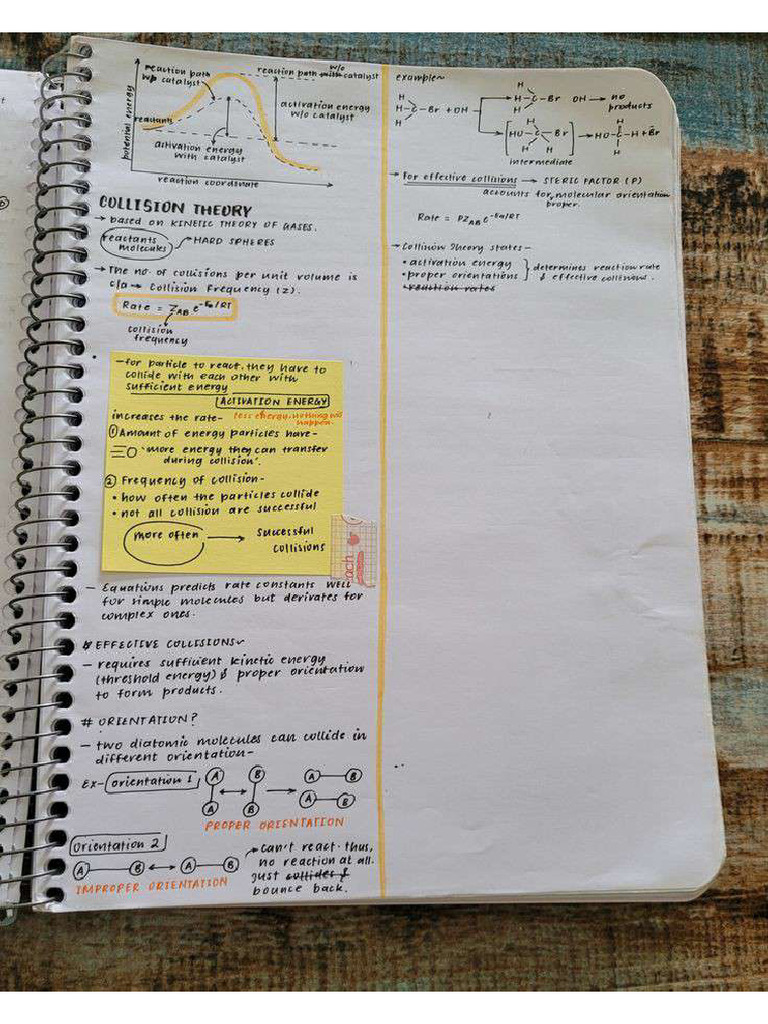 reaction path w/o catalyst
reaction path w/o with catalyst
activation energy w/o catalyst
potential energy
reactants
activation energy with catalyst
reaction coordinate
COLLISION THEORY
→ based on KINETIC THEORY OF GASES.
reactants molecules → HARD SPHERES
→ The no. of collisions per unit volume is
c/a → Collision Frequency (Z).
Rate = Z_AB e^-Ea/RT
collision
frequency
- for particle to react. they have to
collide with each other with
sufficient energy
ACTIVATION ENERGY
increases the rate- less energy. nothing
happen.
① Amount of energy particles have-
"more energy they can transfer
during collision".
② Frequency of collision-
• how often the particles collide
• not all collision are successful
more often → successful
collisions
each
- Equations predicts rate constants well
for simple molecules but derivates for
complex ones.
EFFECTIVE COLLISIONS~
- requires sufficient kinetic energy
(threshold energy) & proper orientation
to form products.
# ORIENTATION?
- two diatomic molecules can collide in
different orientation-
Ex- orientation 1 A B A B
A B A B
PROPER ORIENTATION
Orientation 2
A B ↔ A B
IMPROPER ORIENTATION
→ can't react. thus,
no reaction at all.
Just collides &
bounce back.
example~
H
H-C-Br + OH
H
H
H-C-Br OH → no
products
H
[HO-C-Br]
H H
intermediate
H
→ HO-C-H + Br
H
→ For effective collisions → STERIC FACTOR (P)
accounts for molecular orientation
proper.
Rate = PZ_AB e^-Ea/RT
→ Collision Theory states-
• activation energy
• proper orientations } determines reaction rate
& effective collisions.
• reaction rates